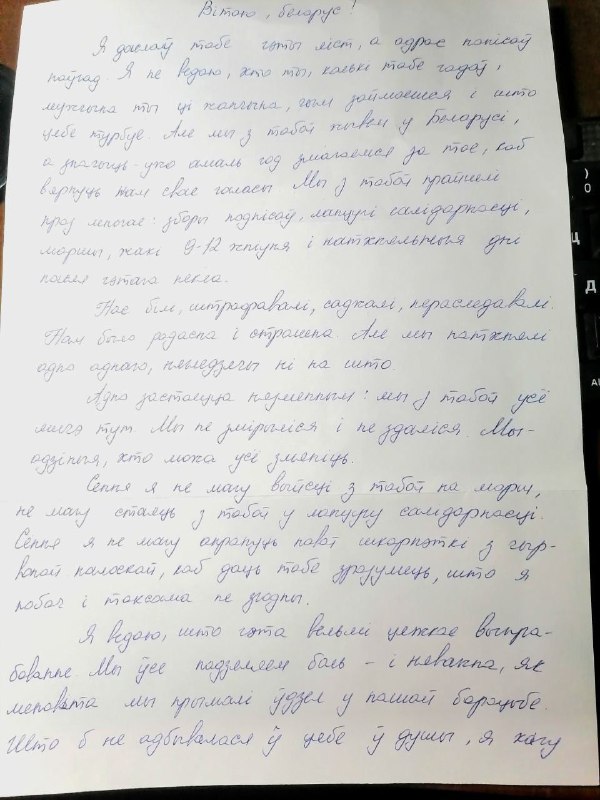 Вітаю, беларус!
Я даслаў табе гэты ліст, а адрас напісаў
наўгад. Я не ведаю, хто ты, колькі табе гадоў,
мужчына ты ці жанчына, чым займаешся і што
цябе турбуе. Але мы з табой жывем у Беларусі,
а значыць - ужо амаль год змагаемся за тое, каб
вярнуць нам свае галасы. Мы з табой прайшлі
праз многае: зборы подпісаў, ланцугі салідарнасці,
маршы, жахі 9-12 жніўня і натхняльныя дні
пасля гэтага пекла.
Нас білі, штрафавалі, саджалі, пераследавалі.
Нам было радасна і страшна. Але мы натхнялі
адно аднаго, нягледзячы ні на што.
Адно застаецца нязменным: мы з табой усё
яшчэ тут. Мы не змірыліся і не здаліся. Мы -
адзіныя, хто можа усё змяніць.
Сення я не магу выйсці з табой на марш,
не магу стаяць з табой у ланцугу салідарнасці.
Сення я не магу апрануць нават шкарпэткі з чыр-
вонай палоскай, каб даць табе зразумець, што я
побач і таксама не згодны.
Я ведаю, што гэта вельмі цяжкае выпра-
баванне. Мы ўсе падзяляем боль - і няважна, як
менавіта мы прымалі ўдзел у нашай барацьбе.
Што б не адбывалася ў цябе ў душы, я хачу
Ц
Д